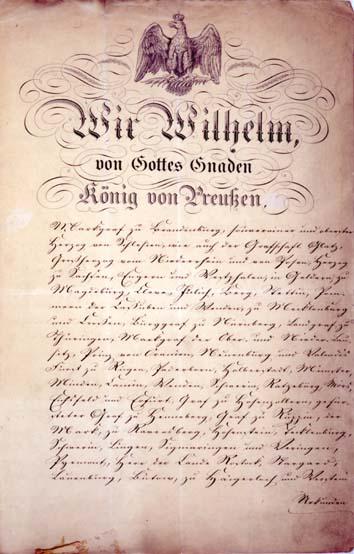 Wir Wilhelm,
von Gottes Gnaden
König von Preußen,
Markgraf zu Brandenburg, souverainer und oberster
Herzog von Schlesien, wie auch der Grafschaft Glatz,
Großherzog vom Niederrhein und von Posen, Herzog
zu Sachsen, Engern und Westphalen, in Geldern, zu
Magdeburg, Cleve, Jülich, Berg, Stettin, Pom-
mern, der Cassuben und Wenden, zu Mecklenburg
und Crossen, Burggraf zu Nürnberg, Landgraf zu
Thüringen, Markgraf der Ober- und Nieder-Lau-
sitz, Prinz von Oranien, Neuenburg und Valendis
Fürst zu Rügen, Paderborn, Halberstadt, Münster,
Minden, Camin, Wenden, Schwerin, Ratzeburg, Mörs,
Eichsfeld und Erfurt, Graf zu Hohenzollern, gefür-
steter Graf zu Henneberg, Graf zu Ruppin, der
Mark, zu Ravensberg, Hohenstein, Tecklenburg,
Schwerin, Lingen, Sigmaringen und Veringen,
Pyrmont, Herr der Lande Rostock, Stargard,
Lauenburg, Bütow, zu Haigerloch und Werstein